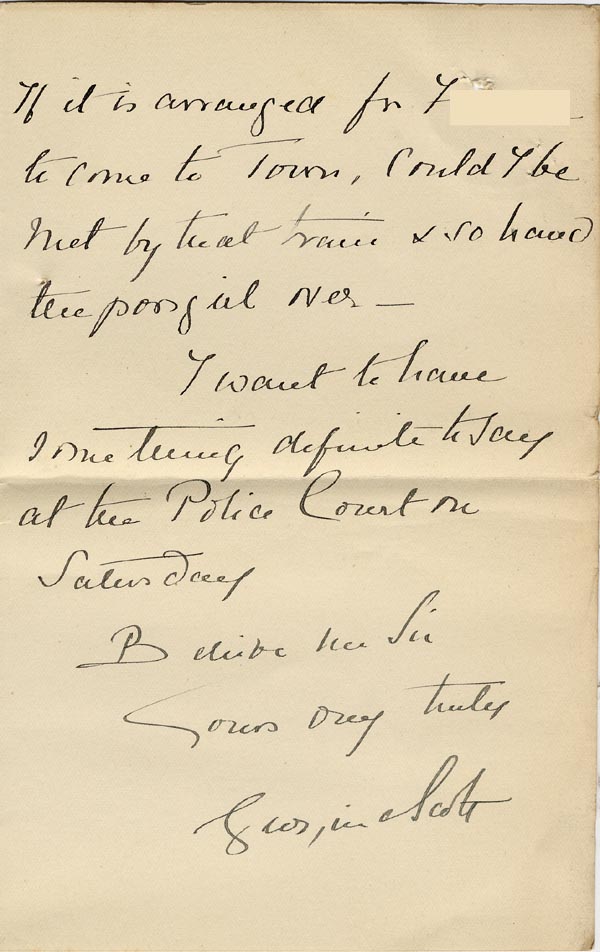 If it is arranged for F
to come to Town, Could I be
met by that train & so hand
the poor girl over —
I want to have
something definite to say
at the Police Court on
Saturday
Believe me Sir
Yours very truly
Georgina Scott